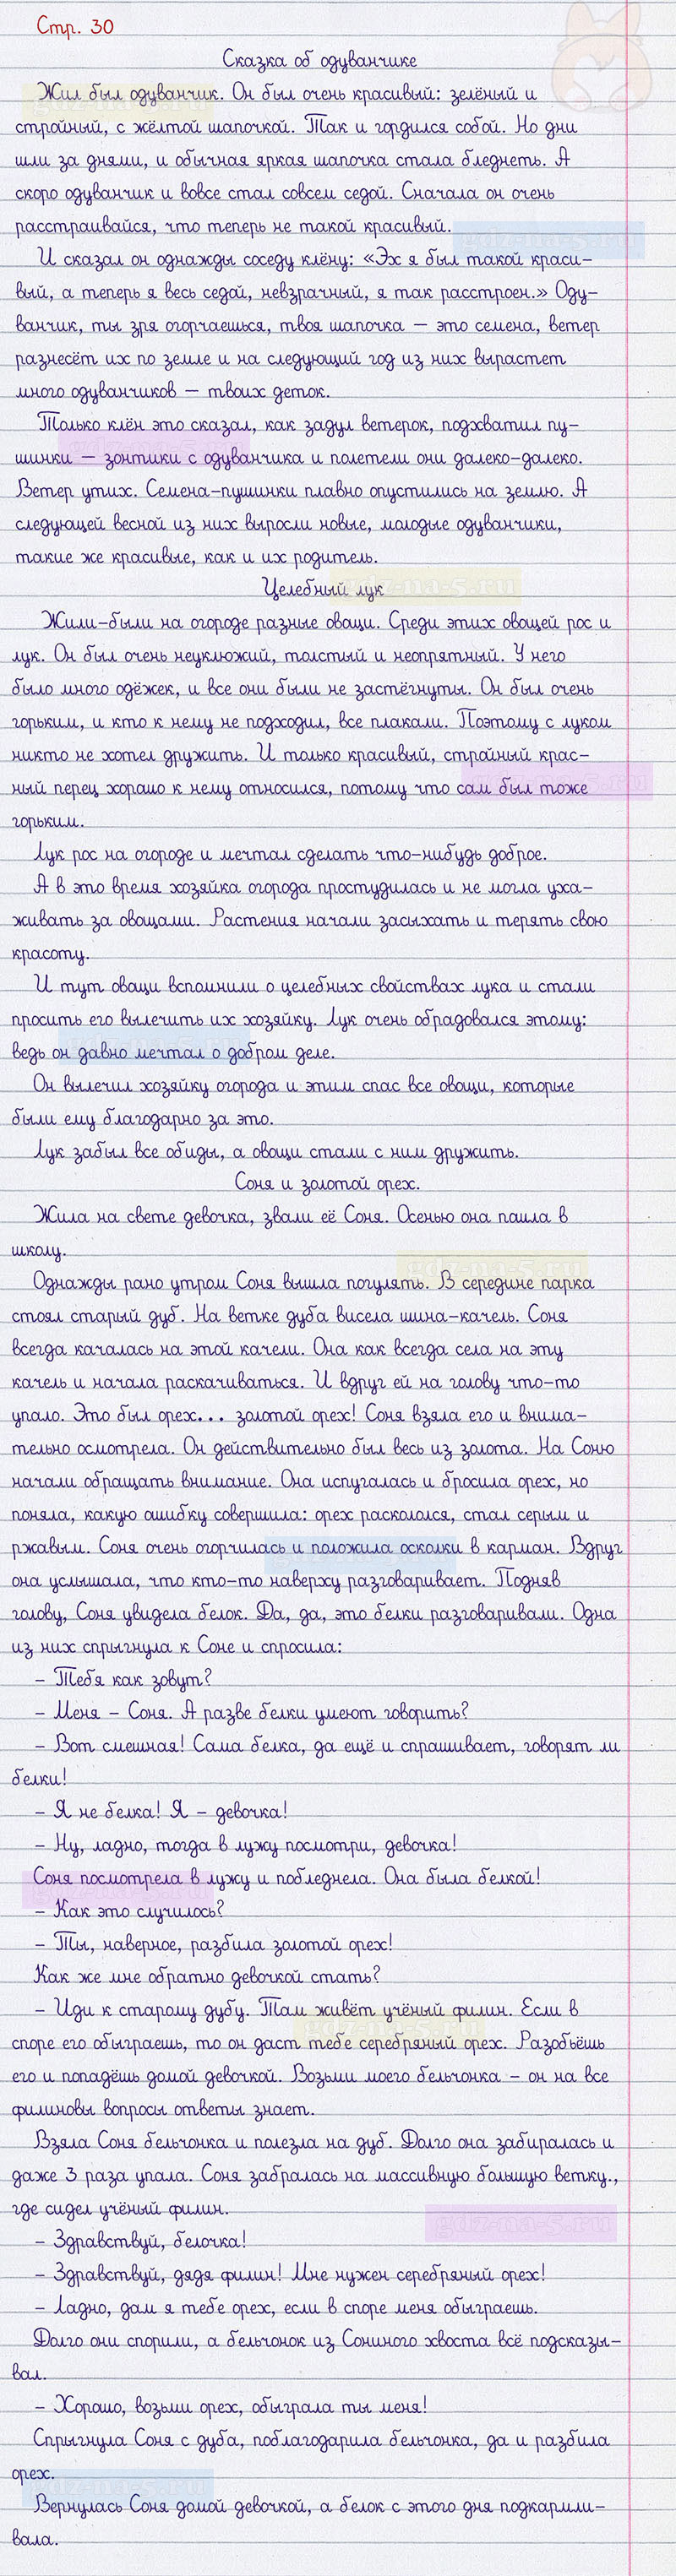 Стр. 30
Сказка об одуванчике
Жил был одуванчик. Он был очень красивый: зелёный и
стройный, с жёлтой шапочкой. Так и гордился собой. Но дни
шли за днями, и обычная яркая шапочка стала бледнеть. А
скоро одуванчик и вовсе стал совсем седой. Сначала он очень
расстраивайся, что теперь не такой красивый.
И сказал он однажды соседу клёну: «Эх я был такой краси-
вый, а теперь я весь седой, невзрачный, я так расстроен.» Оду-
ванчик, ты зря огорчаешься, твоя шапочка – это семена, ветер
разнесёт их по земле и на следующий год из них вырастет
много одуванчиков – твоих деток.
Только клён это сказал, как задул ветерок, подхватил пу-
шинки – зонтики с одуванчика и полетели они далеко-далеко.
Ветер утих. Семена-пушинки плавно опустились на землю. А
следующей весной из них выросли новые, молодые одуванчики,
такие же красивые, как и их родитель.
Целебный лук
Жили-были на огороде разные овощи. Среди этих овощей рос и
лук. Он был очень неуклюжий, толстый и неопрятный. У него
было много одёжек, и все они были не застёгнуты. Он был очень
горьким, и кто к нему не подходил, все плакали. Поэтому с луком
никто не хотел дружить. И только красивый, стройный крас-
ный перец хорошо к нему относился, потому что сам был тоже
горьким.
Лук рос на огороде и мечтал сделать что-нибудь доброе.
А в это время хозяйка огорода простудилась и не могла уха-
живать за овощами. Растения начали засыхать и терять свою
красоту.
И тут овощи вспомнили о целебных свойствах лука и стали
просить его вылечить их хозяйку. Лук очень обрадовался этому:
ведь он давно мечтал о добром деле.
Он вылечил хозяйку огорода и этим спас все овощи, которые
были ему благодарно за это.
Лук забыл все обиды, а овощи стали с ним дружить.
Соня и золотой орех.
Жила на свете девочка, звали её Соня. Осенью она пошла в
школу.
Однажды рано утром Соня вышла погулять. В середине парка
стоял старый дуб. На ветке дуба висела шина-качель. Соня
всегда качалась на этой качели. Она как всегда села на эту
качель и начала раскачиваться. И вдруг ей на голову что-то
упало. Это был орех... золотой орех! Соня взяла его и внима-
тельно осмотрела. Он действительно был весь из золота. На Соню
начали обращать внимание. Она испугалась и бросила орех, но
поняла, какую ошибку совершила: орех раскололся, стал серым и
ржавым. Соня очень огорчилась и положила осколки в карман. Вдруг
она услышала, что кто-то наверху разговаривает. Подняв
голову, Соня увидела белок. Да, да, это белки разговаривали. Одна
из них спрыгнула к Соне и спросила:
– Тебя как зовут?
– Меня – Соня. А разве белки умеют говорить?
– Вот смешная! Сама белка, да ещё и спрашивает, говорят ли
белки!
– Я не белка! Я – девочка!
– Ну, ладно, тогда в лужу посмотри, девочка!
Соня посмотрела в лужу и побледнела. Она была белкой!
– Как это случилось?
– Ты, наверное, разбила золотой орех!
Как же мне обратно девочкой стать?
– Иди к старому дубу. Там живёт учёный филин. Если в
споре его обыграешь, то он даст тебе серебряный орех. Разобьёшь
его и попадёшь домой девочкой. Возьми моего бельчонка – он на все
филиновы вопросы ответы знает.
Взяла Соня бельчонка и полезла на дуб. Долго она забиралась и
даже 3 раза упала. Соня забралась на массивную большую ветку.,
где сидел учёный филин.
– Здравствуй, белочка!
– Здравствуй, дядя филин! Мне нужен серебряный орех!
– Ладно, дам я тебе орех, если в споре меня обыграешь.
Долго они спорили, а бельчонок из Сониного хвоста всё подсказы-
вал.
– Хорошо, возьми орех, обыграла ты меня!
Спрыгнула Соня с дуба, поблагодарила бельчонка, да и разбила
орех.
Вернулась Соня домой девочкой, а белок с этого дня подкармли-
вала.